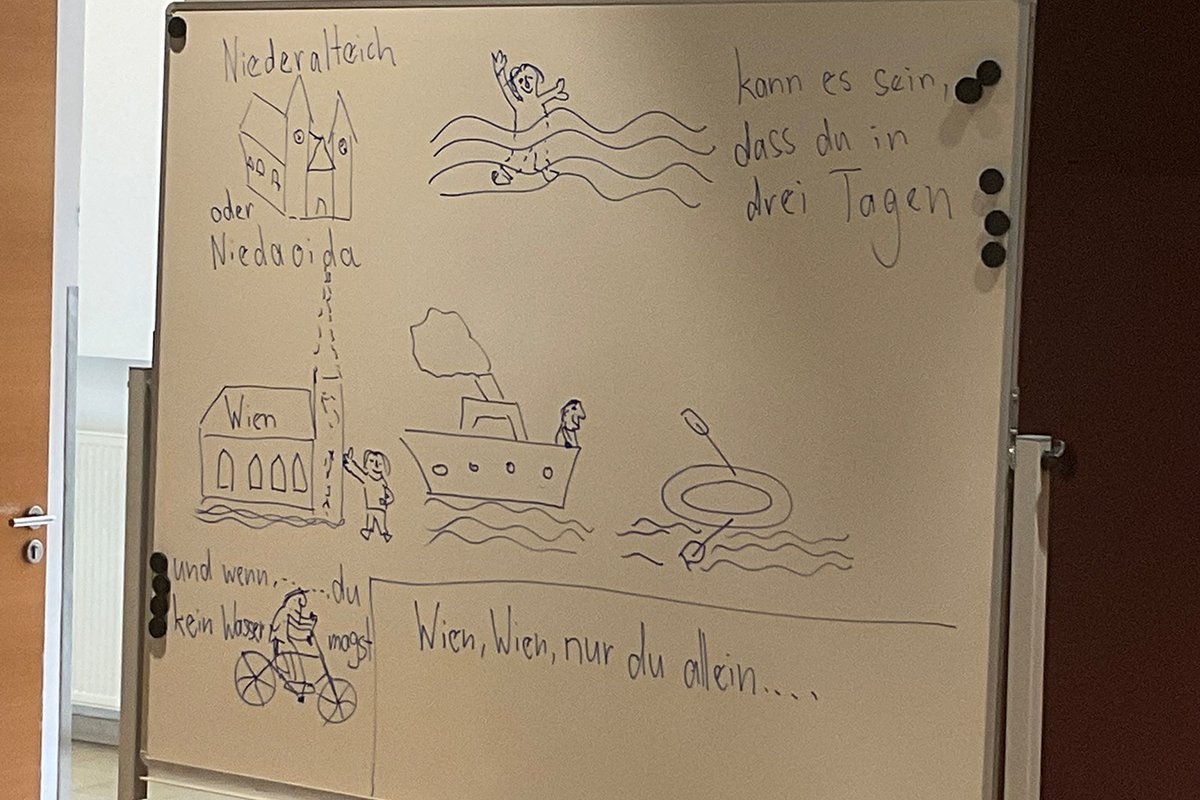 Niederalteich
oder
Niedaoida
kann es sein,
dass du in
drei Tagen
Wien
und wenn,........du
kein Wasser magst
Wien, Wien, nur du allein....